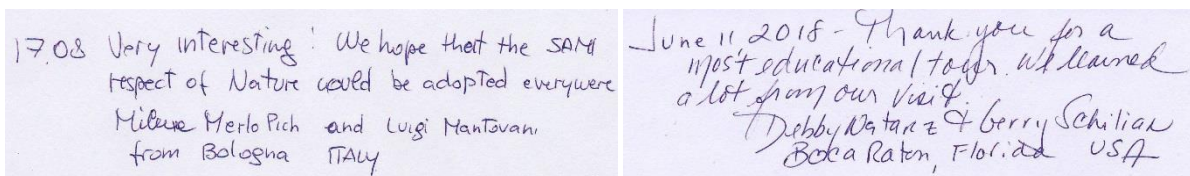 17.08 Very interesting! We hope that the SAMI
respect of Nature could be adopted everywere
Merlo Pich and Luigi Mantovani
from Bologna ITALY
June 11, 2018 - Thank you for a
most educational tour. We learned
a lot from our visit.
Debby & Gerry
Boca Raton, Florida USA